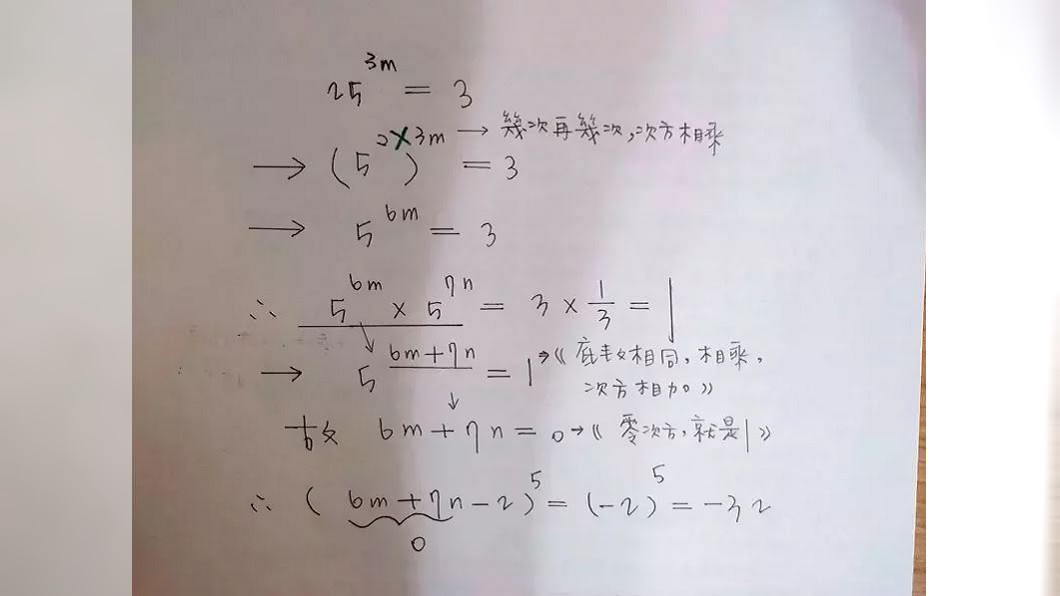 25^{3m} = 3
→ (5^{2×3m}) = 3 → 幾次再幾次,次方相乘
→ 5^{6m} = 3
∴ 5^{6m} × 5^{7n} = 3 × 1/3 = 1
→ 5^{6m+7n} = 1 →《底數相同,相乘,
次方相加》
故 6m+7n=0→《零次方,就是1》
∴ (6m+7n-2)^5 = (-2)^5 = -32
0